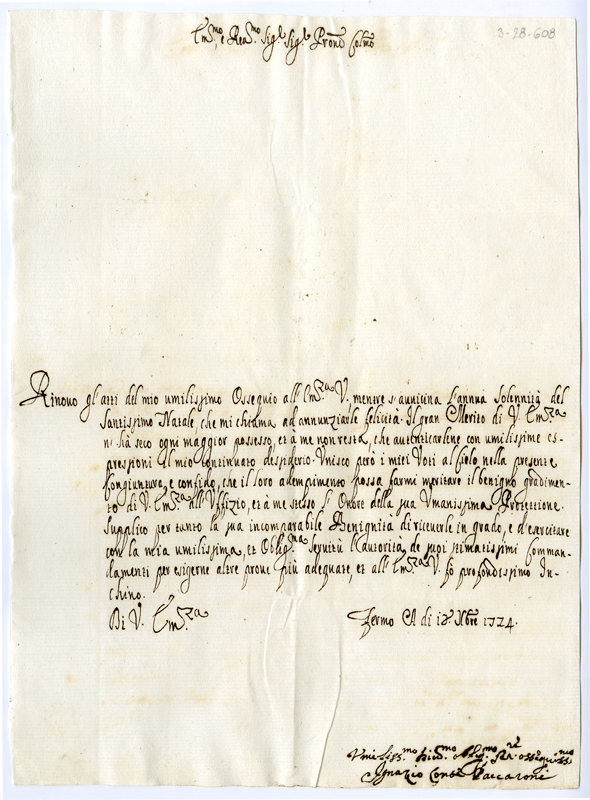 3-28-608
Em.mo, e Reu.mo Sig.r Sig.r Pron̄e Col̄mo
Rinouo gl'atti del mio umilissimo Ossequio all'Em.za V. mentre s'auuicina l'annua Solennità del
Santissimo Natale, che mi chiama ad annunziarle felicità. Il gran Merito di V. Em.za
n' hà seco ogni maggior possesso, et à me non resta, che autenticarlene con umilissime es-
pressioni il mio continuato desiderio. Vnisco però i miei Voti al Cielo nella presente
Congiuntura, e confido, che il loro adempimento possa farmi meritare il benigno gradimen-
to di V. Em.za all'Vffizio, et à me stesso l'Onore della sua Vmanissima Protettione.
Supplico per tanto la sua incomparabile Benignità di riceuerle in grado, e d'esercitare
con la mia umilissima, et Oblig.ma seruitù l'autorità de suoi stimatissimi Comman-
damenti per esigerne altre proue più adequate, et all'Em.za V. fò profondissimo In-
chino.
Di V. Em.za
Fermo A di 12. Nbre 1724.
Vmiliss.mo Diu.mo Oblig.mo Ser.re ossequiosiss.mo
Ignazio Conte Vaccaroni